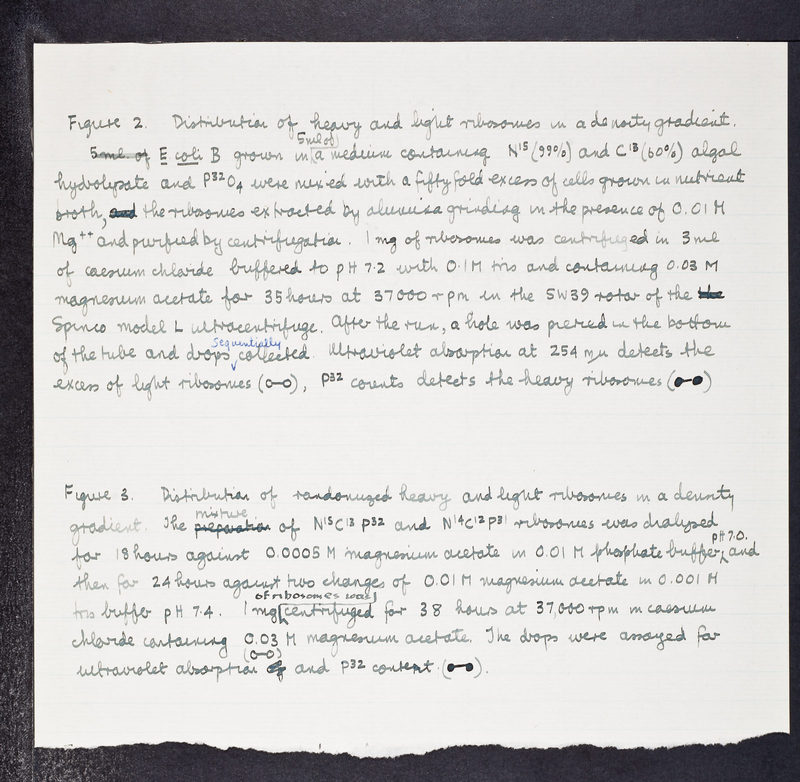 Figure 2. Distribution of heavy and light ribosomes in a density gradient.
5 ml of
5 ml. of E coli B grown in a medium containing N15 (99%) and C13 (60%) algal
hydrolysate and P32O4 were mixed with a fiftyfold excess of cells grown in nutrient
broth, and the ribosomes extracted by alumina grinding in the presence of 0.01 M
Mg++ and purified by centrifugation. 1 mg of ribosomes was centrifuged in 3 ml
of caesium chloride buffered to pH 7.2 with 0.1 M tris and containing 0.03 M
magnesium acetate for 35 hours at 37000 rpm in the SW39 rotor of the the
Spinco model L ultracentrifuge. After the run, a hole was pierced in the bottom
sequentially
of the tube and drops collected. Ultraviolet absorption at 254 mμ detects the
excess of light ribosomes (o-o), P32 counts detects the heavy ribosomes (●-●)
Figure 3. Distribution of randomized heavy and light ribosomes in a density
mixture
gradient. The preparation of N15C13P32 and N14C12P31 ribosomes was dialysed
pH 7.0.
for 18 hours against 0.0005 M magnesium acetate in 0.01 M phosphate buffer, and
then for 24 hours against two changes of 0.01 M magnesium acetate in 0.001 M
of ribosomes was
tris buffer pH 7.4. 1 mg centrifuged for 38 hours at 37,000 rpm in caesium
chloride containing 0.03 M magnesium acetate. The drops were assayed for
(o-o)
ultraviolet absorption of and P32 content (●-●).